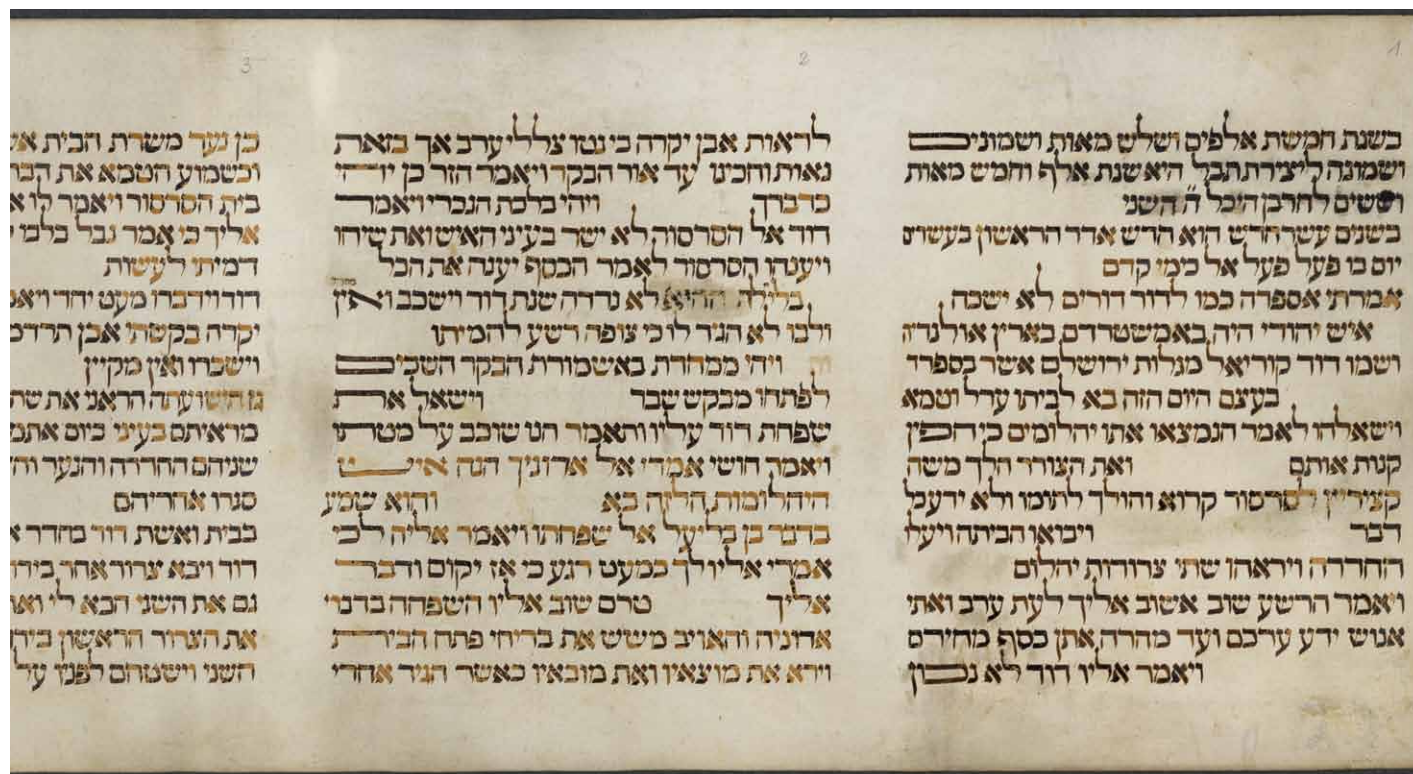 1
בשנת חמשת אלפים ושלש מאות ושמונים
ושמונה ליצירת תבל היא שנת אלף וחמש מאות
וששים לחרבן היכל ה" השני
בשנים עשר חדש הוא חדש אדר הראשון בעשרים
יום בו פעל פעל אל כימי קדם
אמרתי אספרה כמו לדור דורים לא ישכח
איש יהודי היה באמשטרדם בארץ אולנדה
ושמו דוד קוריאל מגלות ירושלם אשר בספרד
בעצם היום הזה בא לביתו ערל וטמא
וישאלהו לאמר הנמצאו אתו יהלומים כי חפץ
קנות אותם ואת הצורר הלך משה
קצירין לסרסור קרוא והולך לתומו ולא ידע כל
דבר ויבואו הביתה ויעלו
החדרה ויראהו שתי צרורות יהלום
ויאמר הרשע שוב אשוב אליך לעת ערב ואתי
אנוש ידע ערכם ועד מהרה אתן כסף מחירם
ויאמר אליו דוד לא נכון
2
לראות אבן יקרה כי נטו צללי ערב אך בזאת
נאות וחכינו עד אור הבקר ויאמר הזר כן יהי
כדברך ויהי בלכת הנכרי ויאמר
דוד אל הסרסור לא ישר בעיני האיש ואת שיחו
ויענהו הסרסור לאמר הכסף יענה את הכל
בלילה ההיא לא נדדה שנת דוד וישכב ואין
ולבו לא הגיד לו כי צופה רשע להמיתו
ויהי ממחרת באשמורת הבקר השכים
לפתחו מבקש שבר וישאל את
שפחת דוד עליו ותאמר הנו שוכב על מטתו
ויאמר חושי אמרי אל אדוניך הנה איש
היהלומות הלזה בא והוא שמע
בדבר בן בליעל אל שפחתו ויאמר אליה לכי
אמרי אליו לך כמעט רגע כי אז יקום ודבר
אליך טרם שוב אליו השפחה בדברי
אדוניה והאויב משש את בריחי פתח הבירת
וירא את מוצאיו ואת מובאיו כאשר הגיד אחרי
3
כן נער משרת הבית
וכשמוע הטמא את
בית הסרסור ויאמר לו
אליך כי אמר נבל בלבו
דמיתי לעשות
דוד וידברו מעט יחד
יקרה בקשתי אבן
וישכרו ואין מקיץ
ועתה הראני את
מראיתם בעיני כיום
שניהם החדרה והנער
סגרו אחריהם
בבית ואשת דוד בחדר
דוד ויבא צרור אחר
גם את השני הבא לי
את הצרור הראשון
השני וישטחם לפניו על